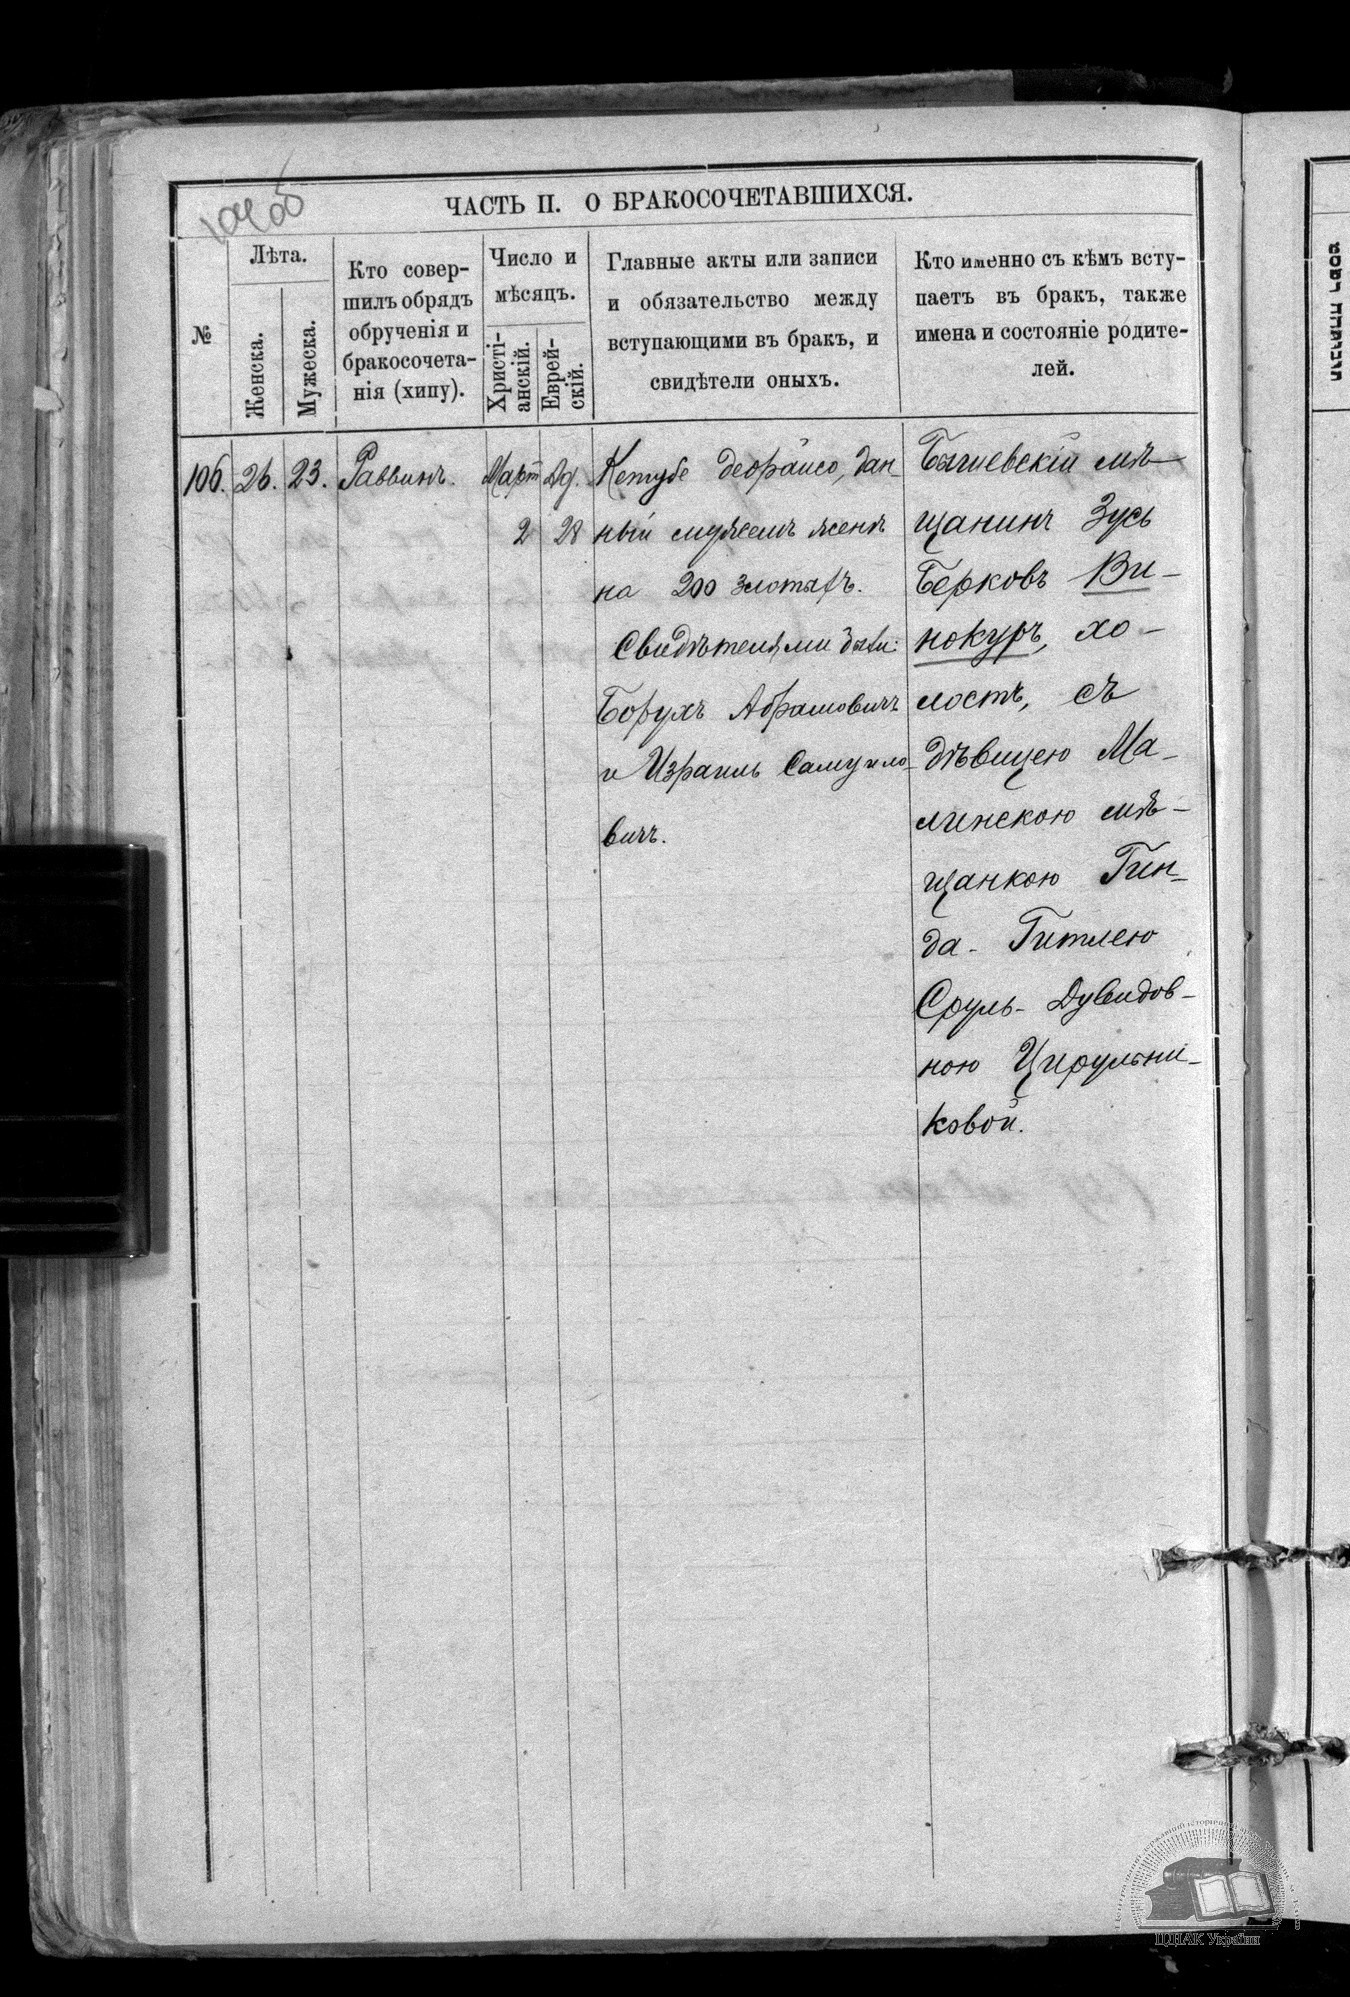 104об
ЧАСТЬ II. О БРАКОСОЧЕТАВШИХСЯ.
№
Лѣта.
Женска.
Мужеска.
Кто совер-
шилъ обрядъ
обрученія и
бракосочета-
нія (хипу).
Число и
мѣсяцъ.
Христі-
анскій.
Еврей-
скій.
Главные акты или записи
и обязательство между
вступающими въ бракъ, и
свидѣтели оныхъ.
Кто именно съ кѣмъ всту-
паетъ въ бракъ, также
имена и состояніе родите-
лей.
106. 26. 23. Раввинъ. Март Ад.
2 28
Кетубе деорайсо, дан-
ный мужемъ женѣ
на 200 злотахъ.
Свидѣтелями были:
Борухъ Абрамовичъ
и Израиль Самуило-
вичъ.
мѣ-
щанинъ Зусь
Берковъ Ви-
нокуръ, хо-
лостъ, съ
дѣвицею Ма-
линскою мѣ-
щанкою Гин-
да-Гитлею
Сруль-Дувидов-
ною Цирульни-
ковой.
ЦДІАК України